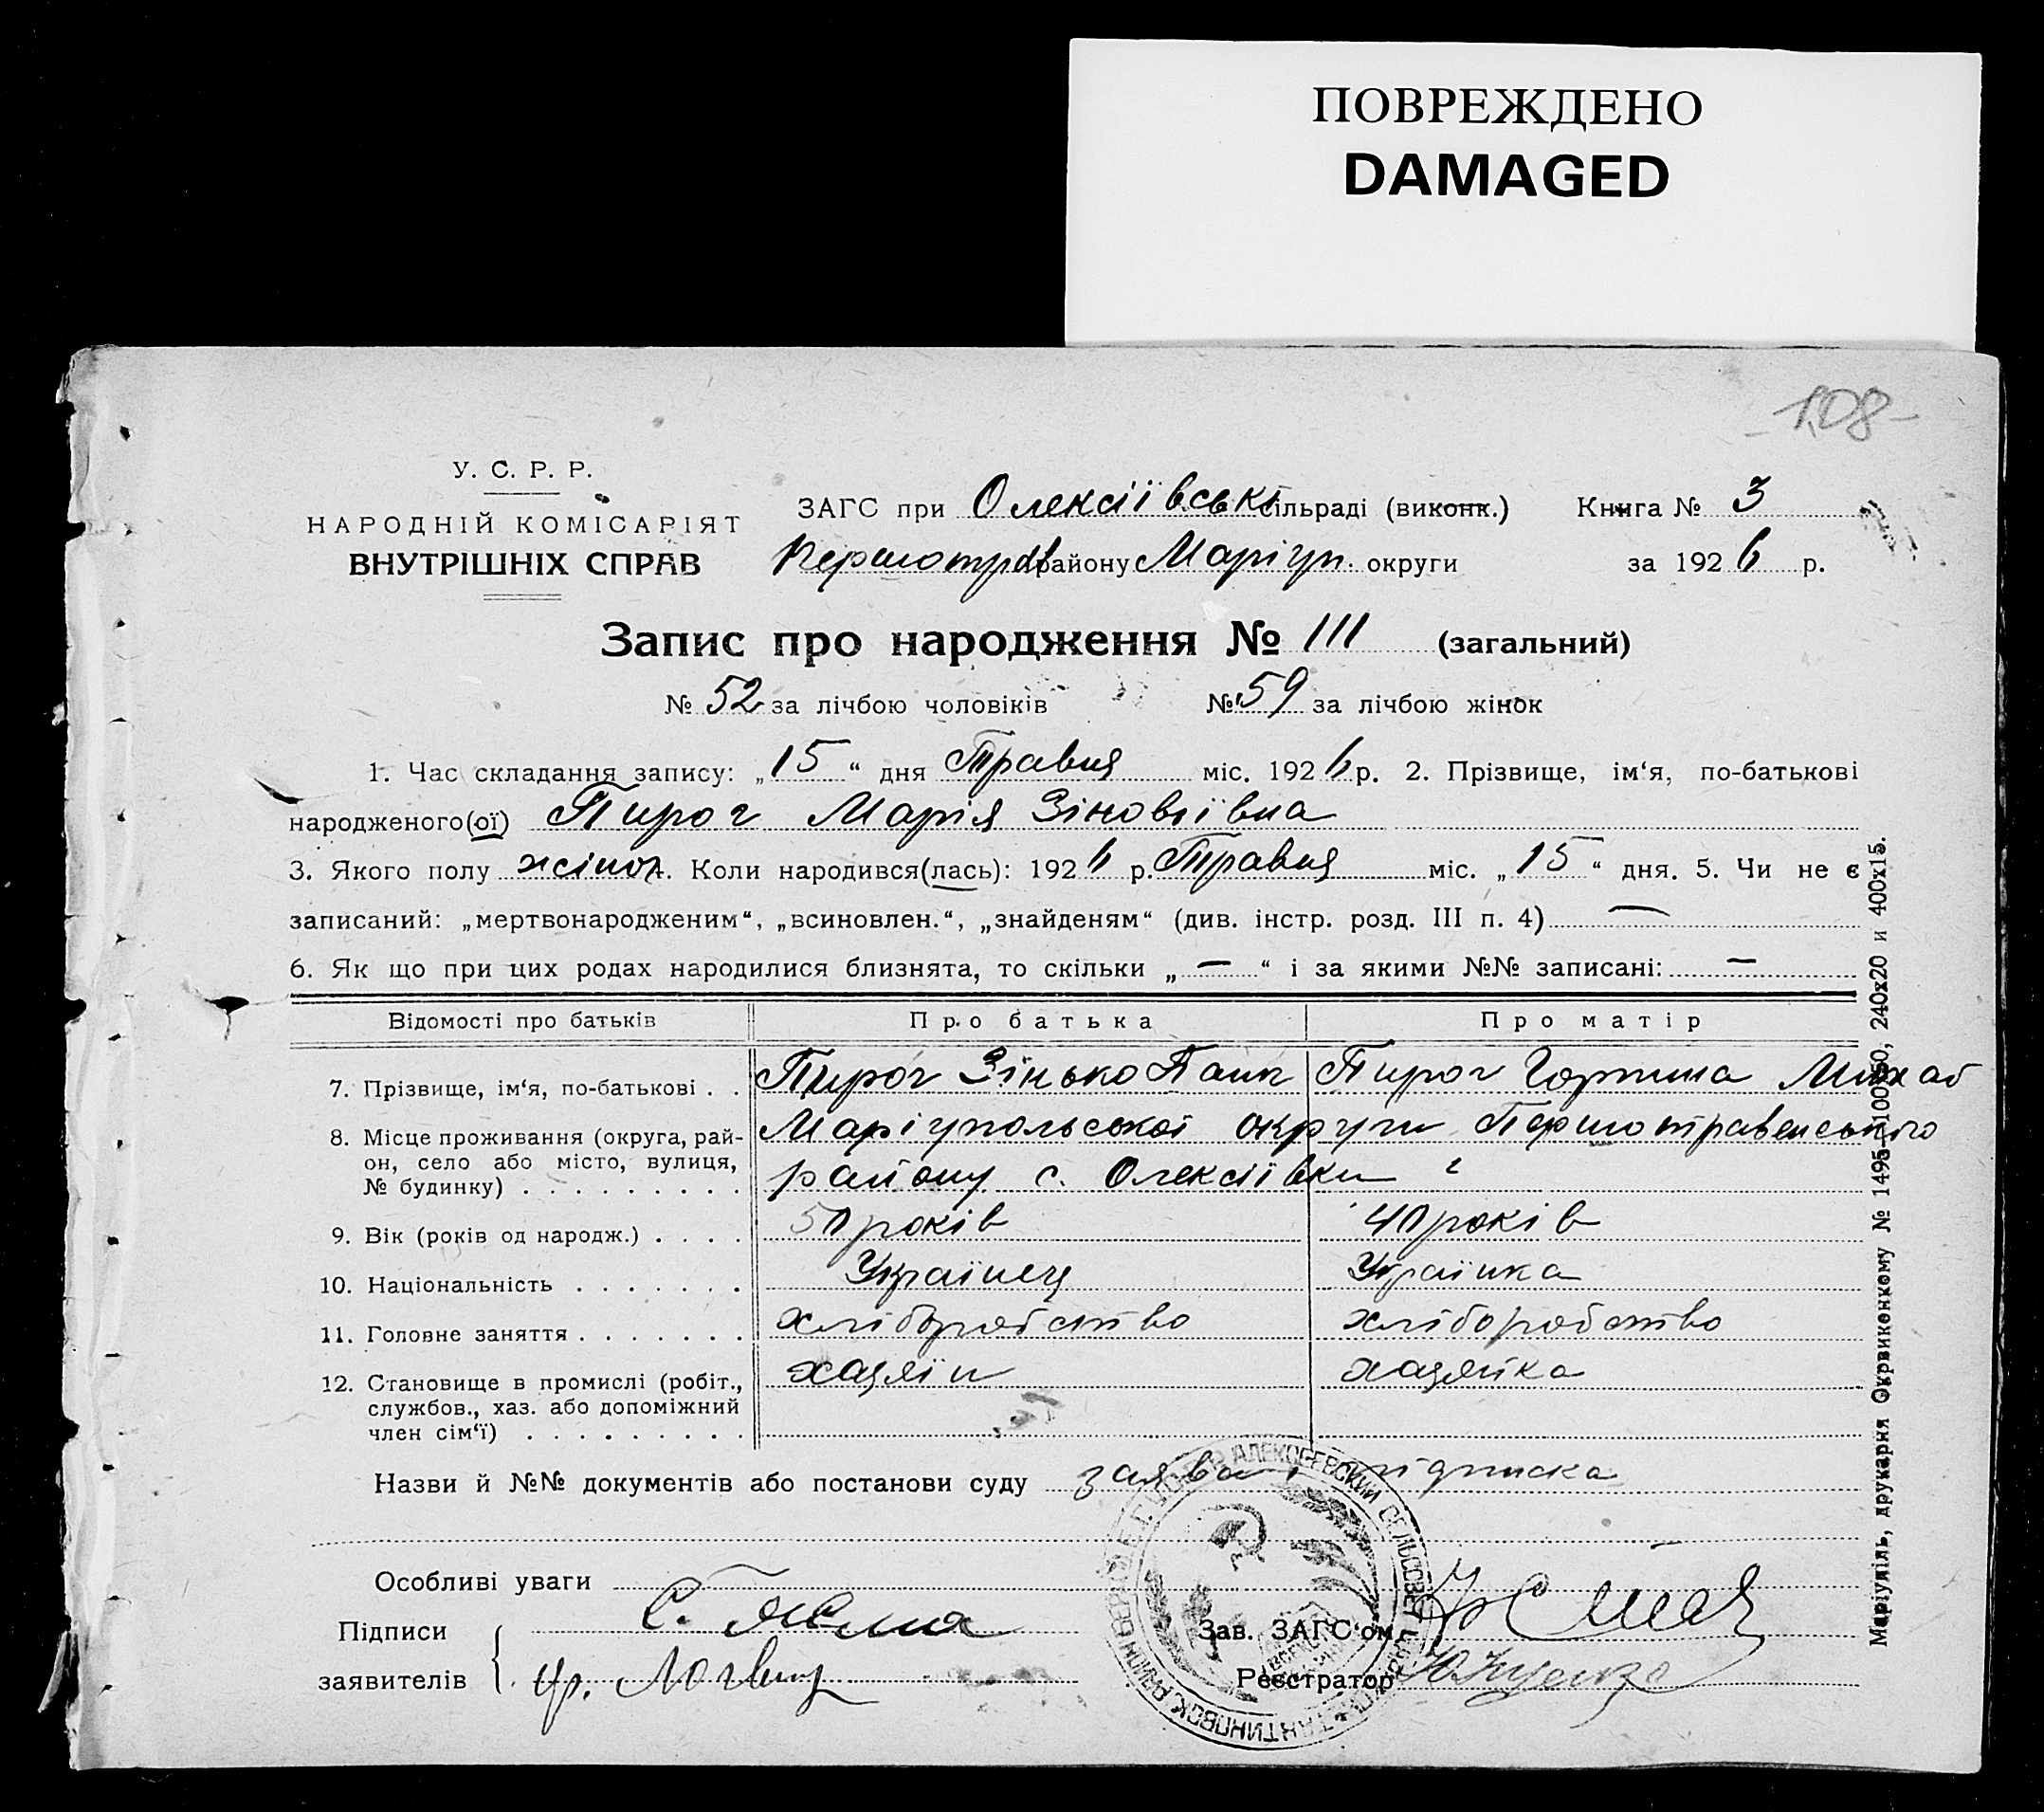 ПОВРЕЖДЕНО
DAMAGED
-108-
У. С. Р. Р.
НАРОДНІЙ КОМІСАРІЯТ
ВНУТРІШНІХ СПРАВ
ЗАГС при Олексіївські сільраді (виконк.) Книга № 3
Першотрав району Маріуп. округи за 1926 р.
Запис про народження № 111 (загальний)
№ 52 за лічбою чоловіків № 59 за лічбою жінок
1. Час складання запису: „15“ дня Травня міс. 1926 р. 2. Прізвище, ім‘я, по-батькові
народженого(ої) Пирог Марія Зіновіївна
3. Якого полу жіноч. Коли народився(лась): 1926 р. Травня міс. „15“ дня. 5. Чи не є
записаний: „мертвонародженим“, „всиновлен.“, „знайденям“ (див. інстр. розд. III п. 4) —
6. Як що при цих родах народилися близнята, то скільки „—“ і за якими №№ записані: —
Відомості про батьків Про батька Про матір
7. Прізвище, ім‘я, по-батькові . . Пирог Зінько Пирог Горпина
8. Місце проживання (округа, рай-
он, село або місто, вулиця,
№ будинку) . . . . . . . . .
Маріупольської округи Першотравенського
району с. Олексіївки
9. Вік (років од народж.) . . . . 50 років 40 років
10. Національність . . . . . . . Українец Українка
11. Головне заняття . . . . . . . хліборобство хліборобство
12. Становище в промислі (робіт.,
службов., хаз. або допоміжний
член сім‘ї) . . . . . . . . .
хазяїн хазяйка
Назви й №№ документів або постанови суду заява і підписка
Особливі уваги
Підписи
заявителів
Зав. ЗАГС‘ом
Реєстратор
АЛЕКСЕЕВСКИЙ СЕЛЬСОВЕТ
Маріупіль, друкарня Окрвиконкому № 1495-100х50, 240х20 и 400х15.